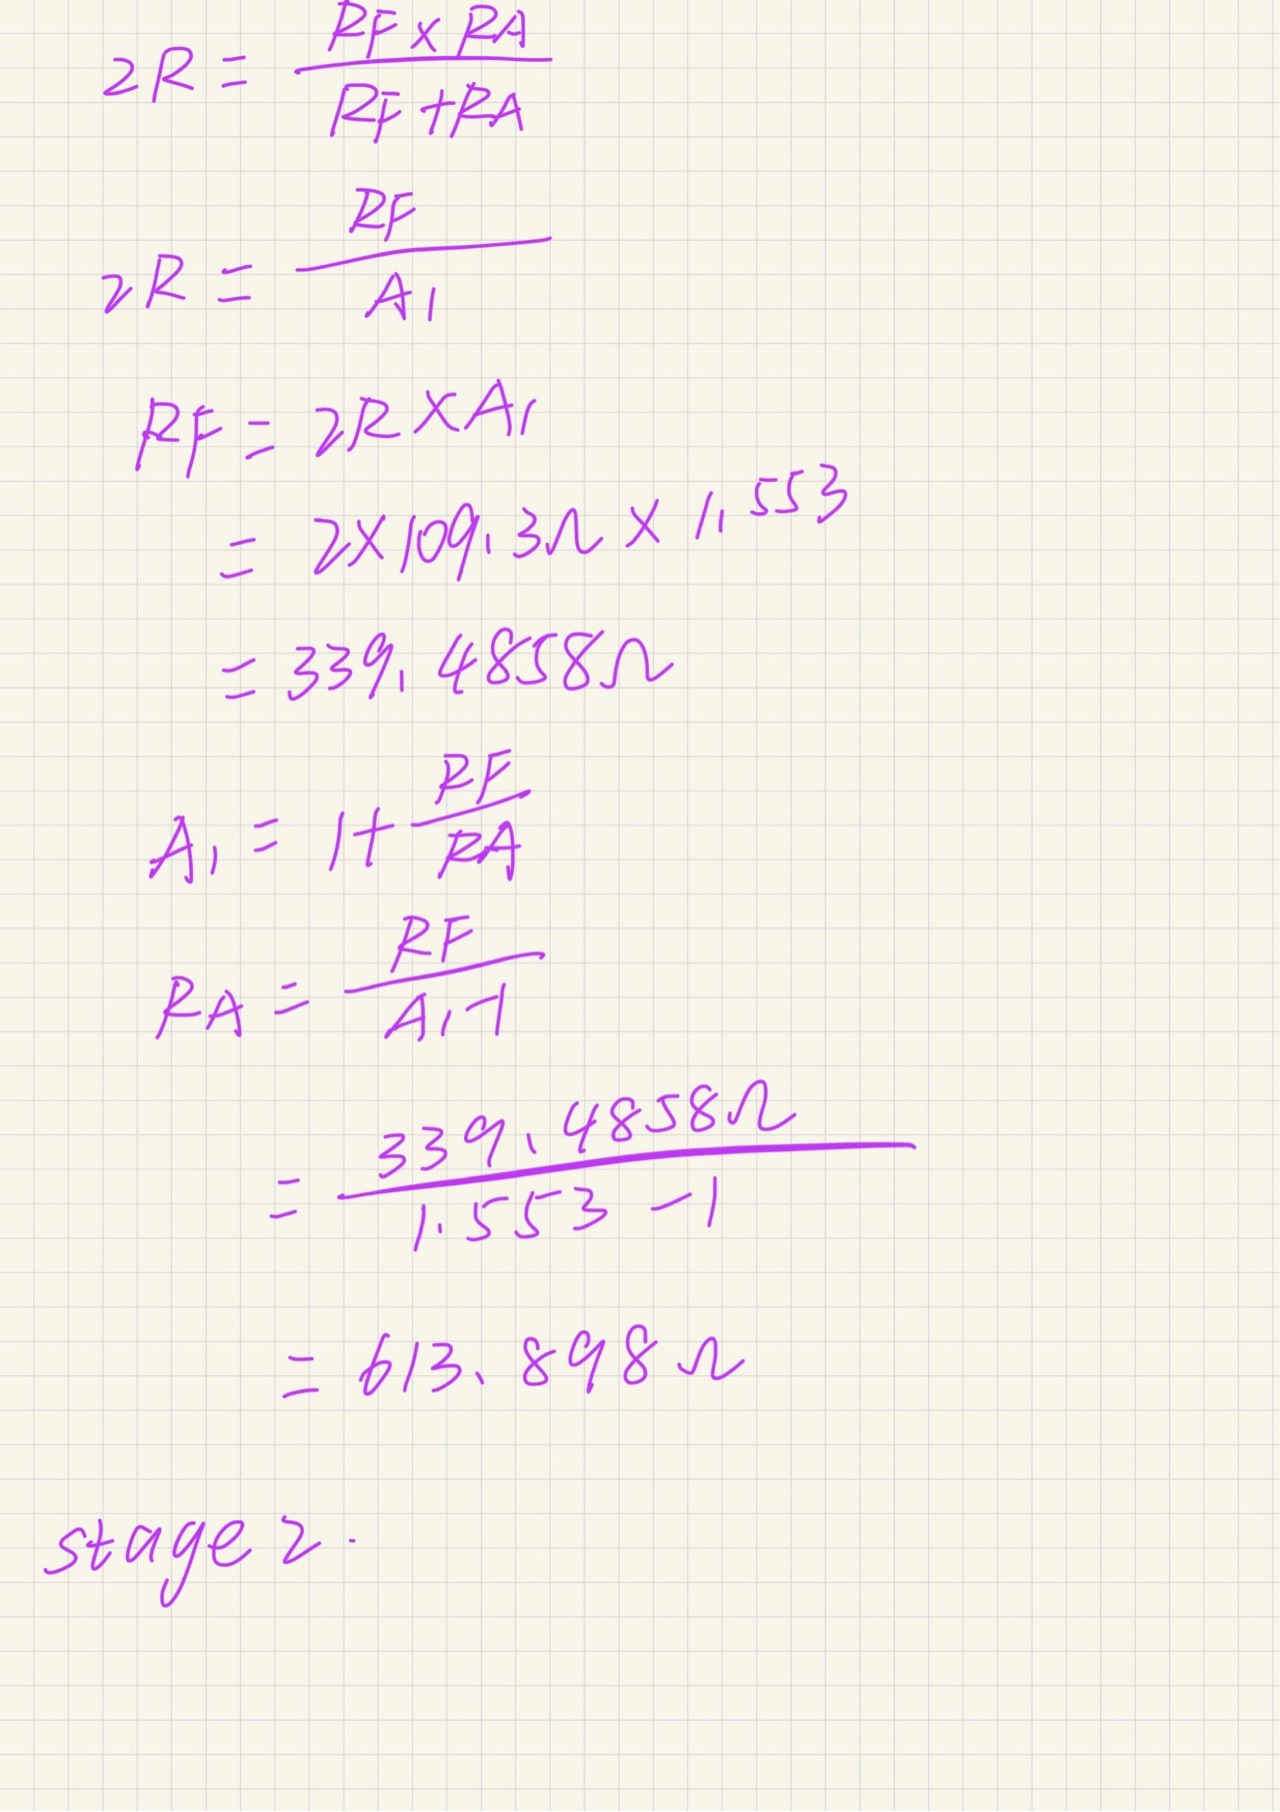 2R = RF × RA / RF + RA
2R = RF / A1
RF = 2R × A1
= 2 × 109.3Ω × 1.553
= 339.4858Ω
A1 = 1 + RF / RA
RA = RF / A1 - 1
= 339.4858Ω / 1.553 - 1
= 613.898Ω
stage 2.